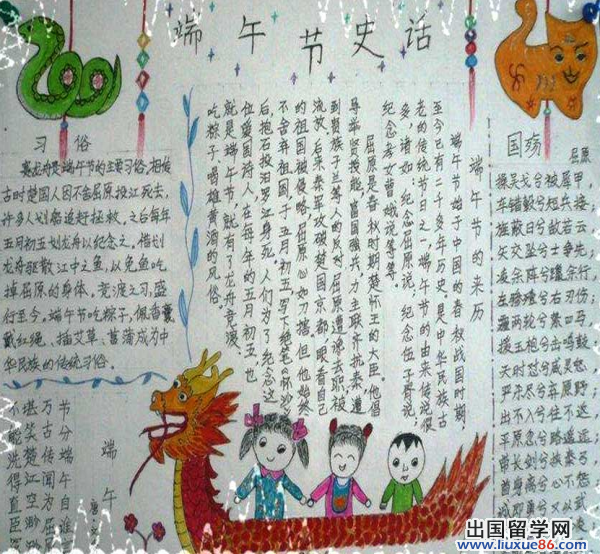 端午节史话
习 俗
赛龙舟是端午节的主要习俗。相传
古时楚国人因不舍屈原投江死去,
许多人划船追赶拯救。之后每年
五月初五划龙舟以纪念之。借划
龙舟驱散江中之鱼,以免鱼吃
掉屈原的身体。竞渡之习,盛
行至今。端午节吃粽子,佩香囊
戴红绳、插艾草、菖蒲成为中
华民族的传统习俗。
端午节的来历
端午节始于中国的春秋战国时期
至今已有二千多年历史。是中华民族古
老的传统节日之一。端午节的由来传说很
多,诸如:纪念屈原说;纪念伍子胥说;
纪念孝女曹娥说等等。
屈原是春秋时期楚怀王的大臣。他倡
导举贤授能,富国强兵,力主联齐抗秦,遭
到贵族子兰等人的反对,屈原遭馋去职,被
流放,后来秦军攻破楚国京都,眼看自己
的祖国被侵略,屈原心如刀割,但他始终
不舍弃祖国,于五月初五写下绝笔《怀沙》
后,抱石投汨罗江身死。人们为了纪念这
位爱国诗人,在每年的五月初五,也
就是端午节,就有了龙舟竞渡、
吃粽子、喝雄黄酒的风俗。
国殇
屈原
操吴戈兮被犀甲,
车错毂兮短兵接。
旌蔽日兮敌若云,
矢交坠兮士争先。
凌余阵兮躐余行,
左骖殪兮右刃伤;
霾两轮兮絷四马,
援玉枹兮击鸣鼓。
天时怼兮威灵怒,
严杀尽兮弃原野;
出不入兮往不返,
平原忽兮路遥远;
带长剑兮挟秦弓,
首身离兮心不惩;
诚既勇兮又以武
端午
唐
节分端午自谁
万古传闻为屈
堪笑楚江空渺
不能洗得直臣
出国留学网
www.liuxue86.com